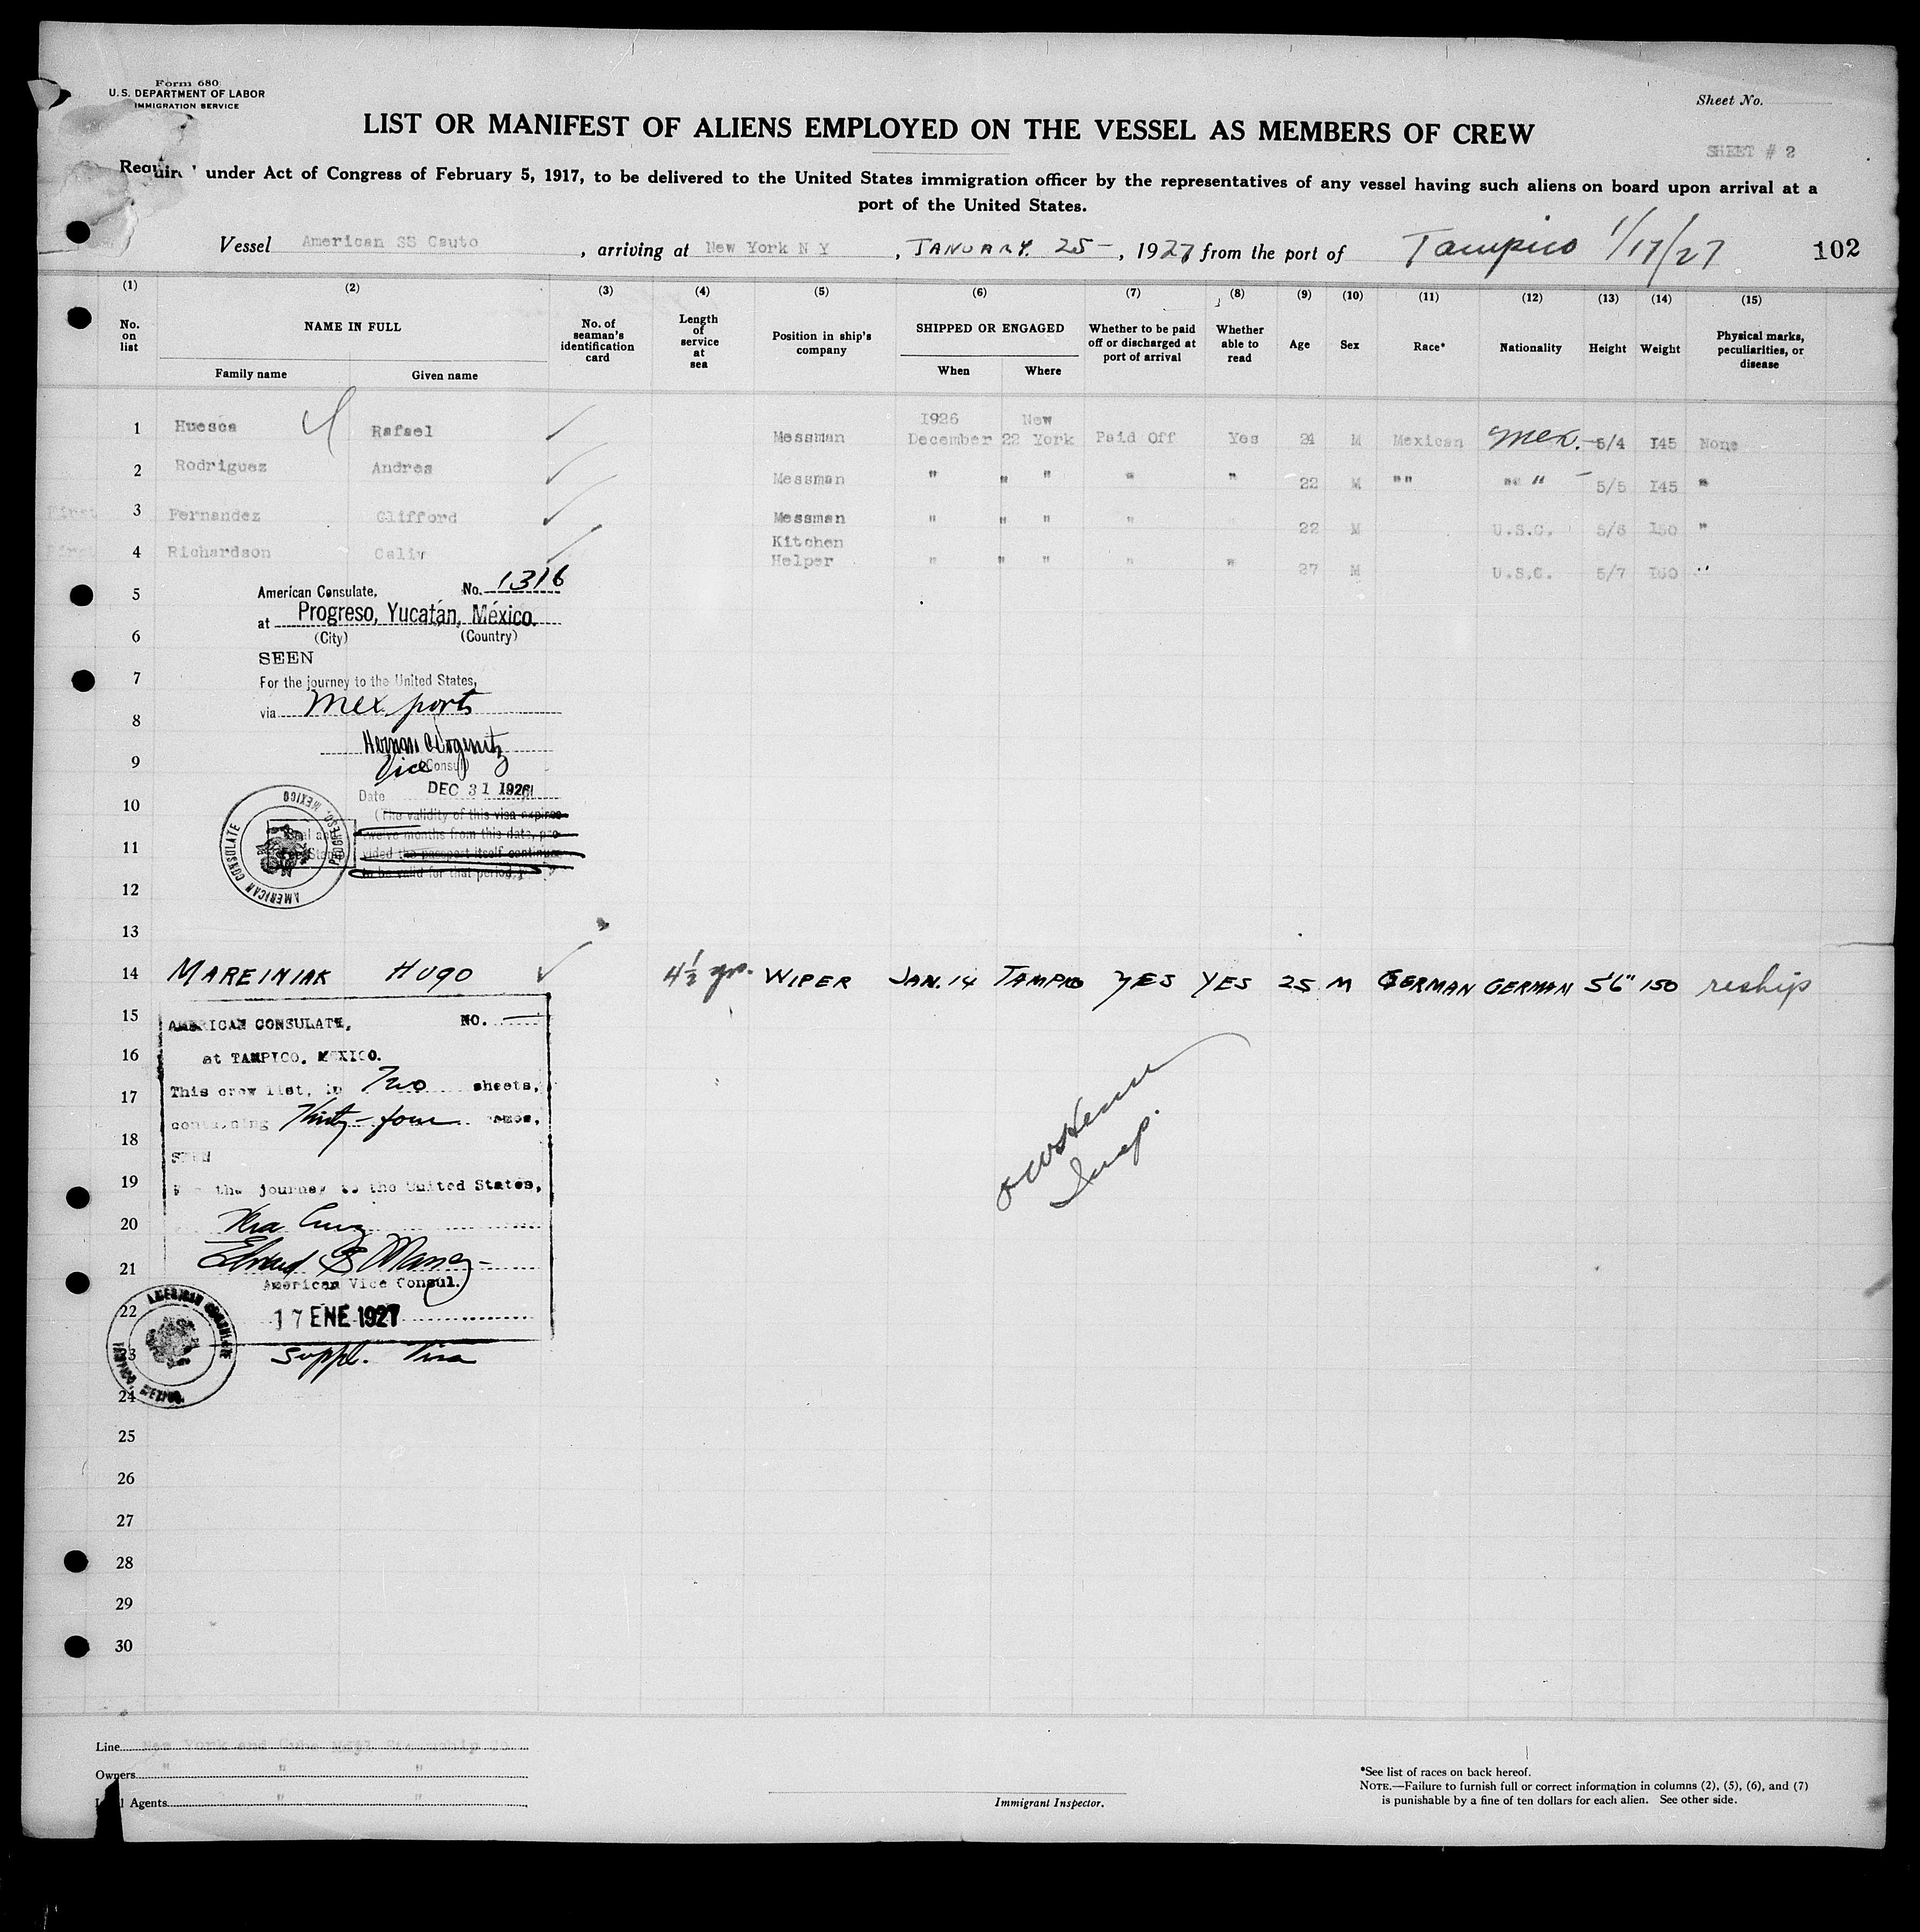 Form 680
U.S. DEPARTMENT OF LABOR
IMMIGRATION SERVICE
Sheet No.
LIST OR MANIFEST OF ALIENS EMPLOYED ON THE VESSEL AS MEMBERS OF CREW
SHEET # 2
under Act of Congress of February 5, 1917, to be delivered to the United States immigration officer by the representatives of any vessel having such aliens on board upon arrival at a
port of the United States.
Vessel American SS Cauto, arriving at New York N Y, JANUARY. 25-, 1927 from the port of Tampico 1/17/27 102
(1) (2) (3) (4) (5) (6) (7) (8) (9) (10) (11) (12) (13) (14) (15)
No. on list NAME IN FULL No. of seaman's identification card Length of service at sea Position in ship's company SHIPPED OR ENGAGED Whether to be paid off or discharged at port of arrival Whether able to read Age Sex Race* Nationality Height Weight Physical marks, peculiarities, or disease
Family name Given name When Where
1926 New
1 Huesca Rafael Messman December 22 York Paid Off Yes 24 M Mexican Mex. 5/4 145 None
2 Rodriguez Andres Messman " " " " " 22 M "" "" " 5/5 145 "
First 3 Fernandez Clifford Messman " " " " 22 M U.S.C. 5/6 150 "
Kitchen
First 4 Richardson Helper " " " " " 27 M U.S.C. 5/7 160 "
5 American Consulate, No. 1316
at Progreso, Yucatán, México.
6 (City) (Country)
SEEN
7 For the journey to the United States,
8 via Mex ports
9 Vice (Consul)
10 Date DEC 31 1926
(The validity of this visa expires
11 twelve months from this date, pro-
vided the passport itself continues
12 to be valid for that period.)
AMERICAN CONSULATE PROGRESO, MEXICO
13
14 MAREINIAK HUGO 4½ yrs. WIPER JAN. 14 TAMPICO YES YES 25 M GERMAN GERMAN 5'6" 150 reship
15 AMERICAN CONSULATE, NO. —
16 at TAMPICO, MEXICO.
17 This crew list, in Two sheets,
18 containing Thirty-four names,
SEEN
19 For the journey to the United States,
20 Vera Cruz
21 American Vice Consul.
22 17 ENE 1927
AMERICAN CONSULATE
23 Suppl. Visa
24
Insp.
25
26
27
28
29
30
Line New York and Cuba Mail Steamship Co
Owners " " "
Agents " "
Immigrant Inspector.
*See list of races on back hereof.
NOTE.—Failure to furnish full or correct information in columns (2), (5), (6), and (7)
is punishable by a fine of ten dollars for each alien. See other side.